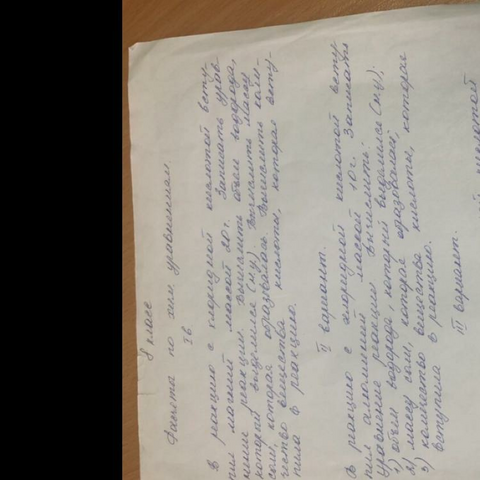 8 класс
Расчеты по хим. уравнениям.
В реакцию с хлоридной кислотой всту-
пил магний массой 20г. Записать урав-
нение реакции. Вычислить объем водорода,
который выделился (н.у.) Вычислить массу
соли, которая образовалась. Вычислить коли-
чество вещества кислоты, которая всту-
пила в реакцию.
II вариант.
В реакцию с хлоридной кислотой всту
пил алюминий массой 10г. Записать
уравнение реакции Вычислить:
1) объем водорода, который выделился (н.у);
2) массу соли, которая образовалась;
3) количество вещества кислоты, которая
вступила в реакцию.
вариант.
кислотой